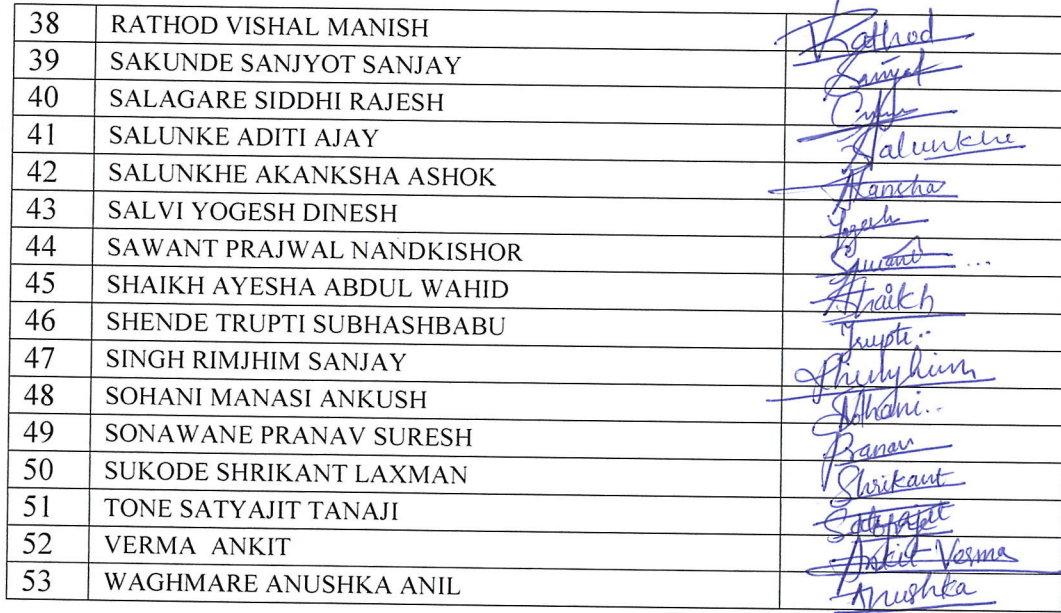 38 RATHOD VISHAL MANISH Rathod
39 SAKUNDE SANJYOT SANJAY Sanjyot
40 SALAGARE SIDDHI RAJESH
41 SALUNKE ADITI AJAY Salunkhe
42 SALUNKHE AKANKSHA ASHOK
43 SALVI YOGESH DINESH Yogesh
44 SAWANT PRAJWAL NANDKISHOR Sawant ...
45 SHAIKH AYESHA ABDUL WAHID Shaikh
46 SHENDE TRUPTI SUBHASHBABU Trupti..
47 SINGH RIMJHIM SANJAY
48 SOHANI MANASI ANKUSH Sohani..
49 SONAWANE PRANAV SURESH Pranav
50 SUKODE SHRIKANT LAXMAN Shrikant
51 TONE SATYAJIT TANAJI Satyajit
52 VERMA ANKIT Ankit Verma
53 WAGHMARE ANUSHKA ANIL Anushka